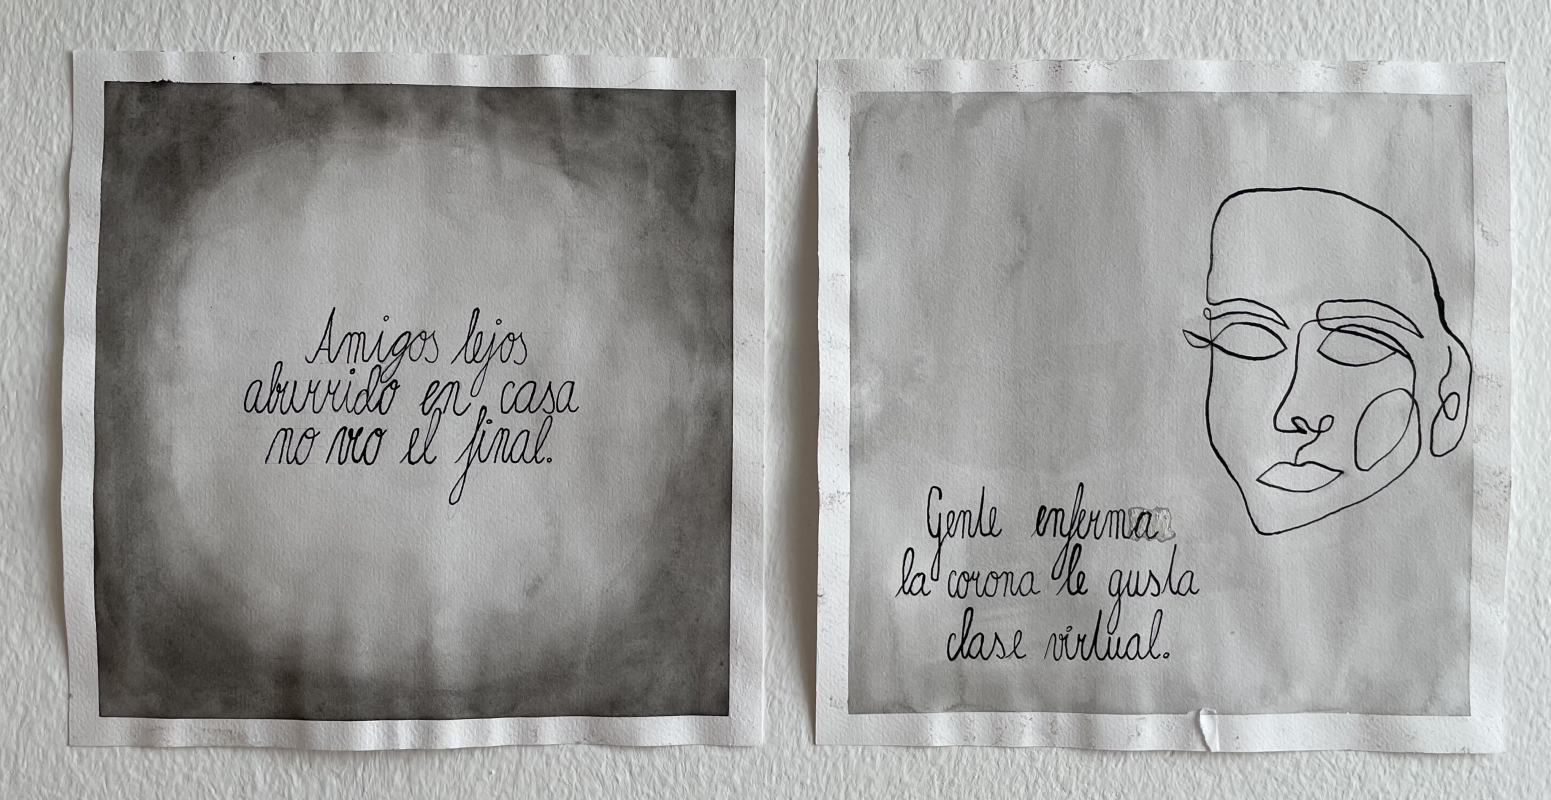 Amigos lejos
aburrido en casa
no veo el final.
Gente enferma
la corona le gusta
clase virtual.